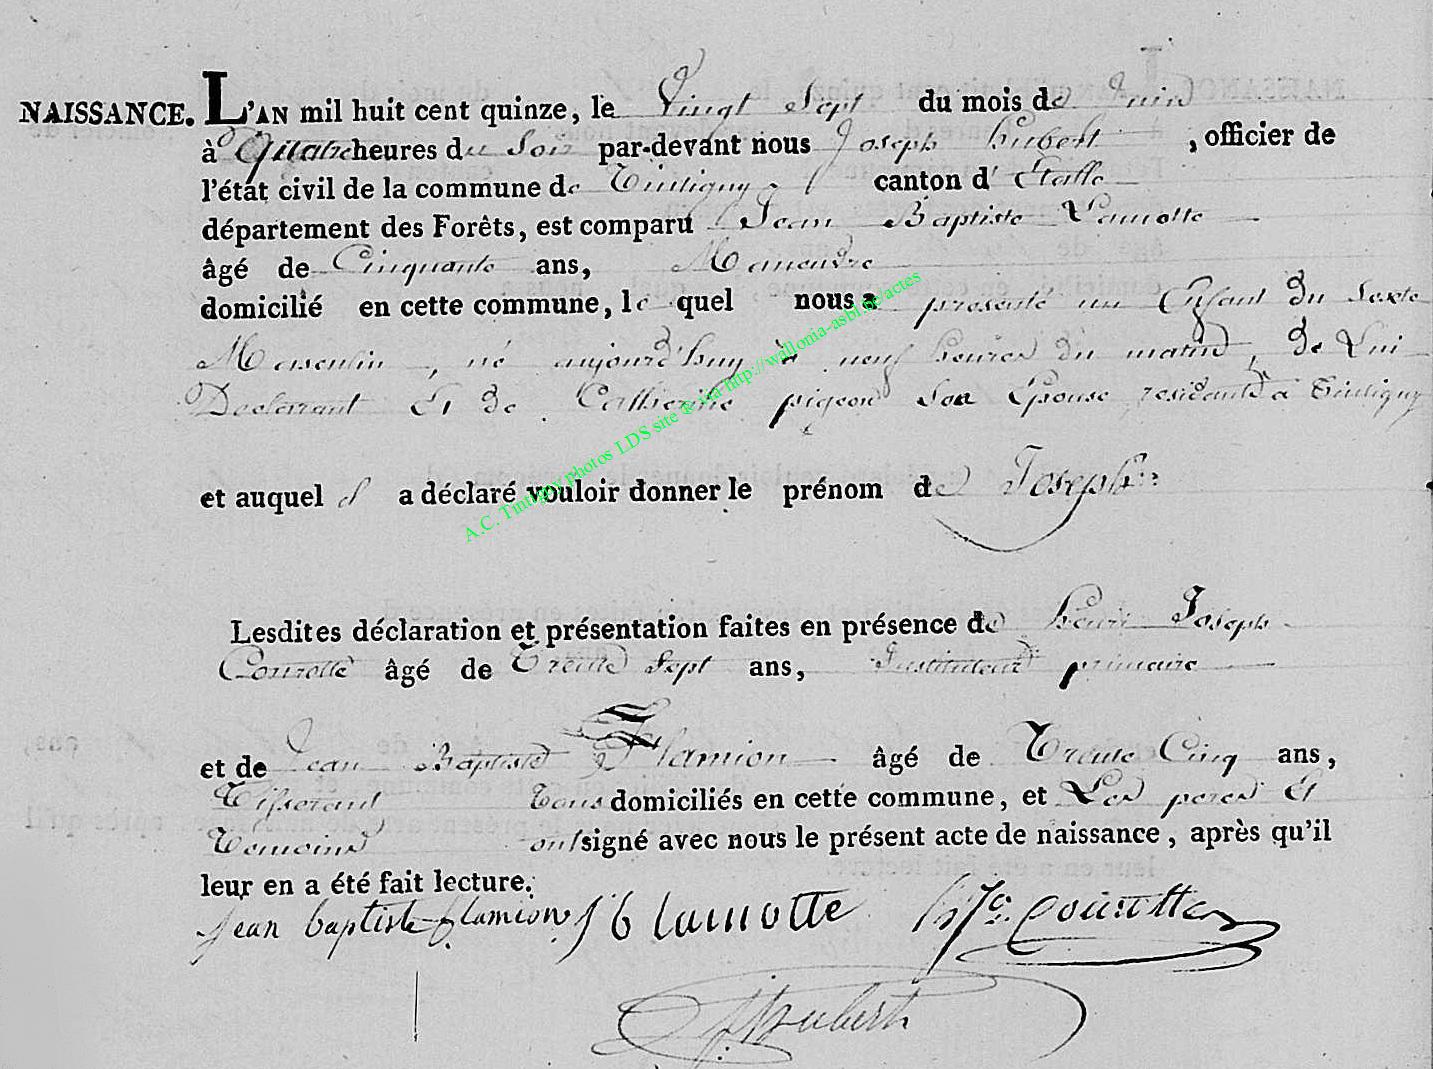 NAISSANCE. L'AN mil huit cent quinze, le Vingt Sept du mois de Juin
à Quatre heures du Soir par-devant nous Joseph hubert, officier de
l'état civil de la commune de Tintigny canton d'Etalle
département des Forêts, est comparu Jean Baptiste Lamotte
âgé de Cinquante ans, Maneuvre
domicilié en cette commune, le quel nous a presenté un Enfant du Sexte
Masculin, né aujourd'huy à neuf heures du matin, de Lui
Declarant Et de Catherine pigeon Son Epouse residante à Tintigny
et auquel il a déclaré vouloir donner le prénom de Joseph
Lesdites déclaration et présentation faites en présence de henri Joseph
Courotte âgé de Trente Sept ans, Instituteur primaire
et de Jean Baptiste Flamion âgé de Trente Cinq ans,
Tisserant Tous domiciliés en cette commune, et Les peres Et
Temoins ont signé avec nous le présent acte de naissance, après qu'il
leur en a été fait lecture.
jean baptiste flamion J b lamotte hJ Courotte
J hubert
A.C. Tintigny photos LDS site & via http://wallonia-asbl.be/actes